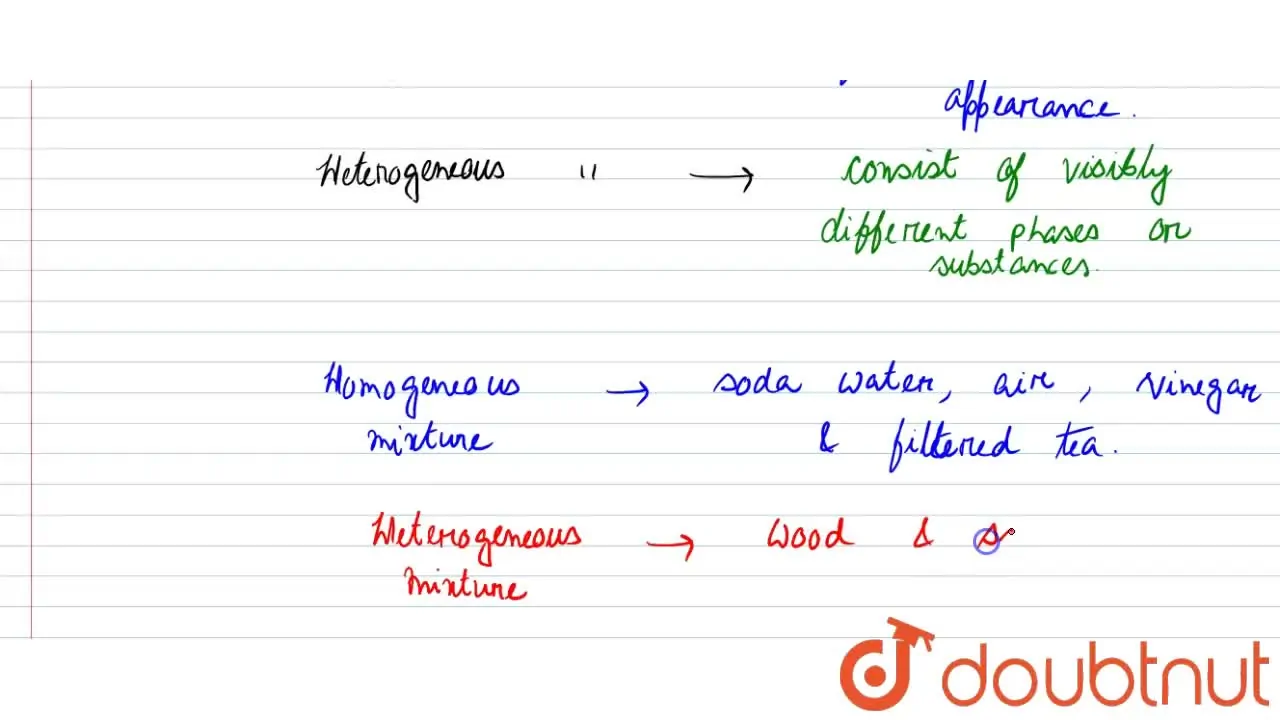 appearance.
Heterogeneous " → consist of visibly
different phases or
substances.
Homogeneous → soda water, air, vinegar
mixture & filtered tea.
Heterogeneous → Wood & s
mixture
doubtnut